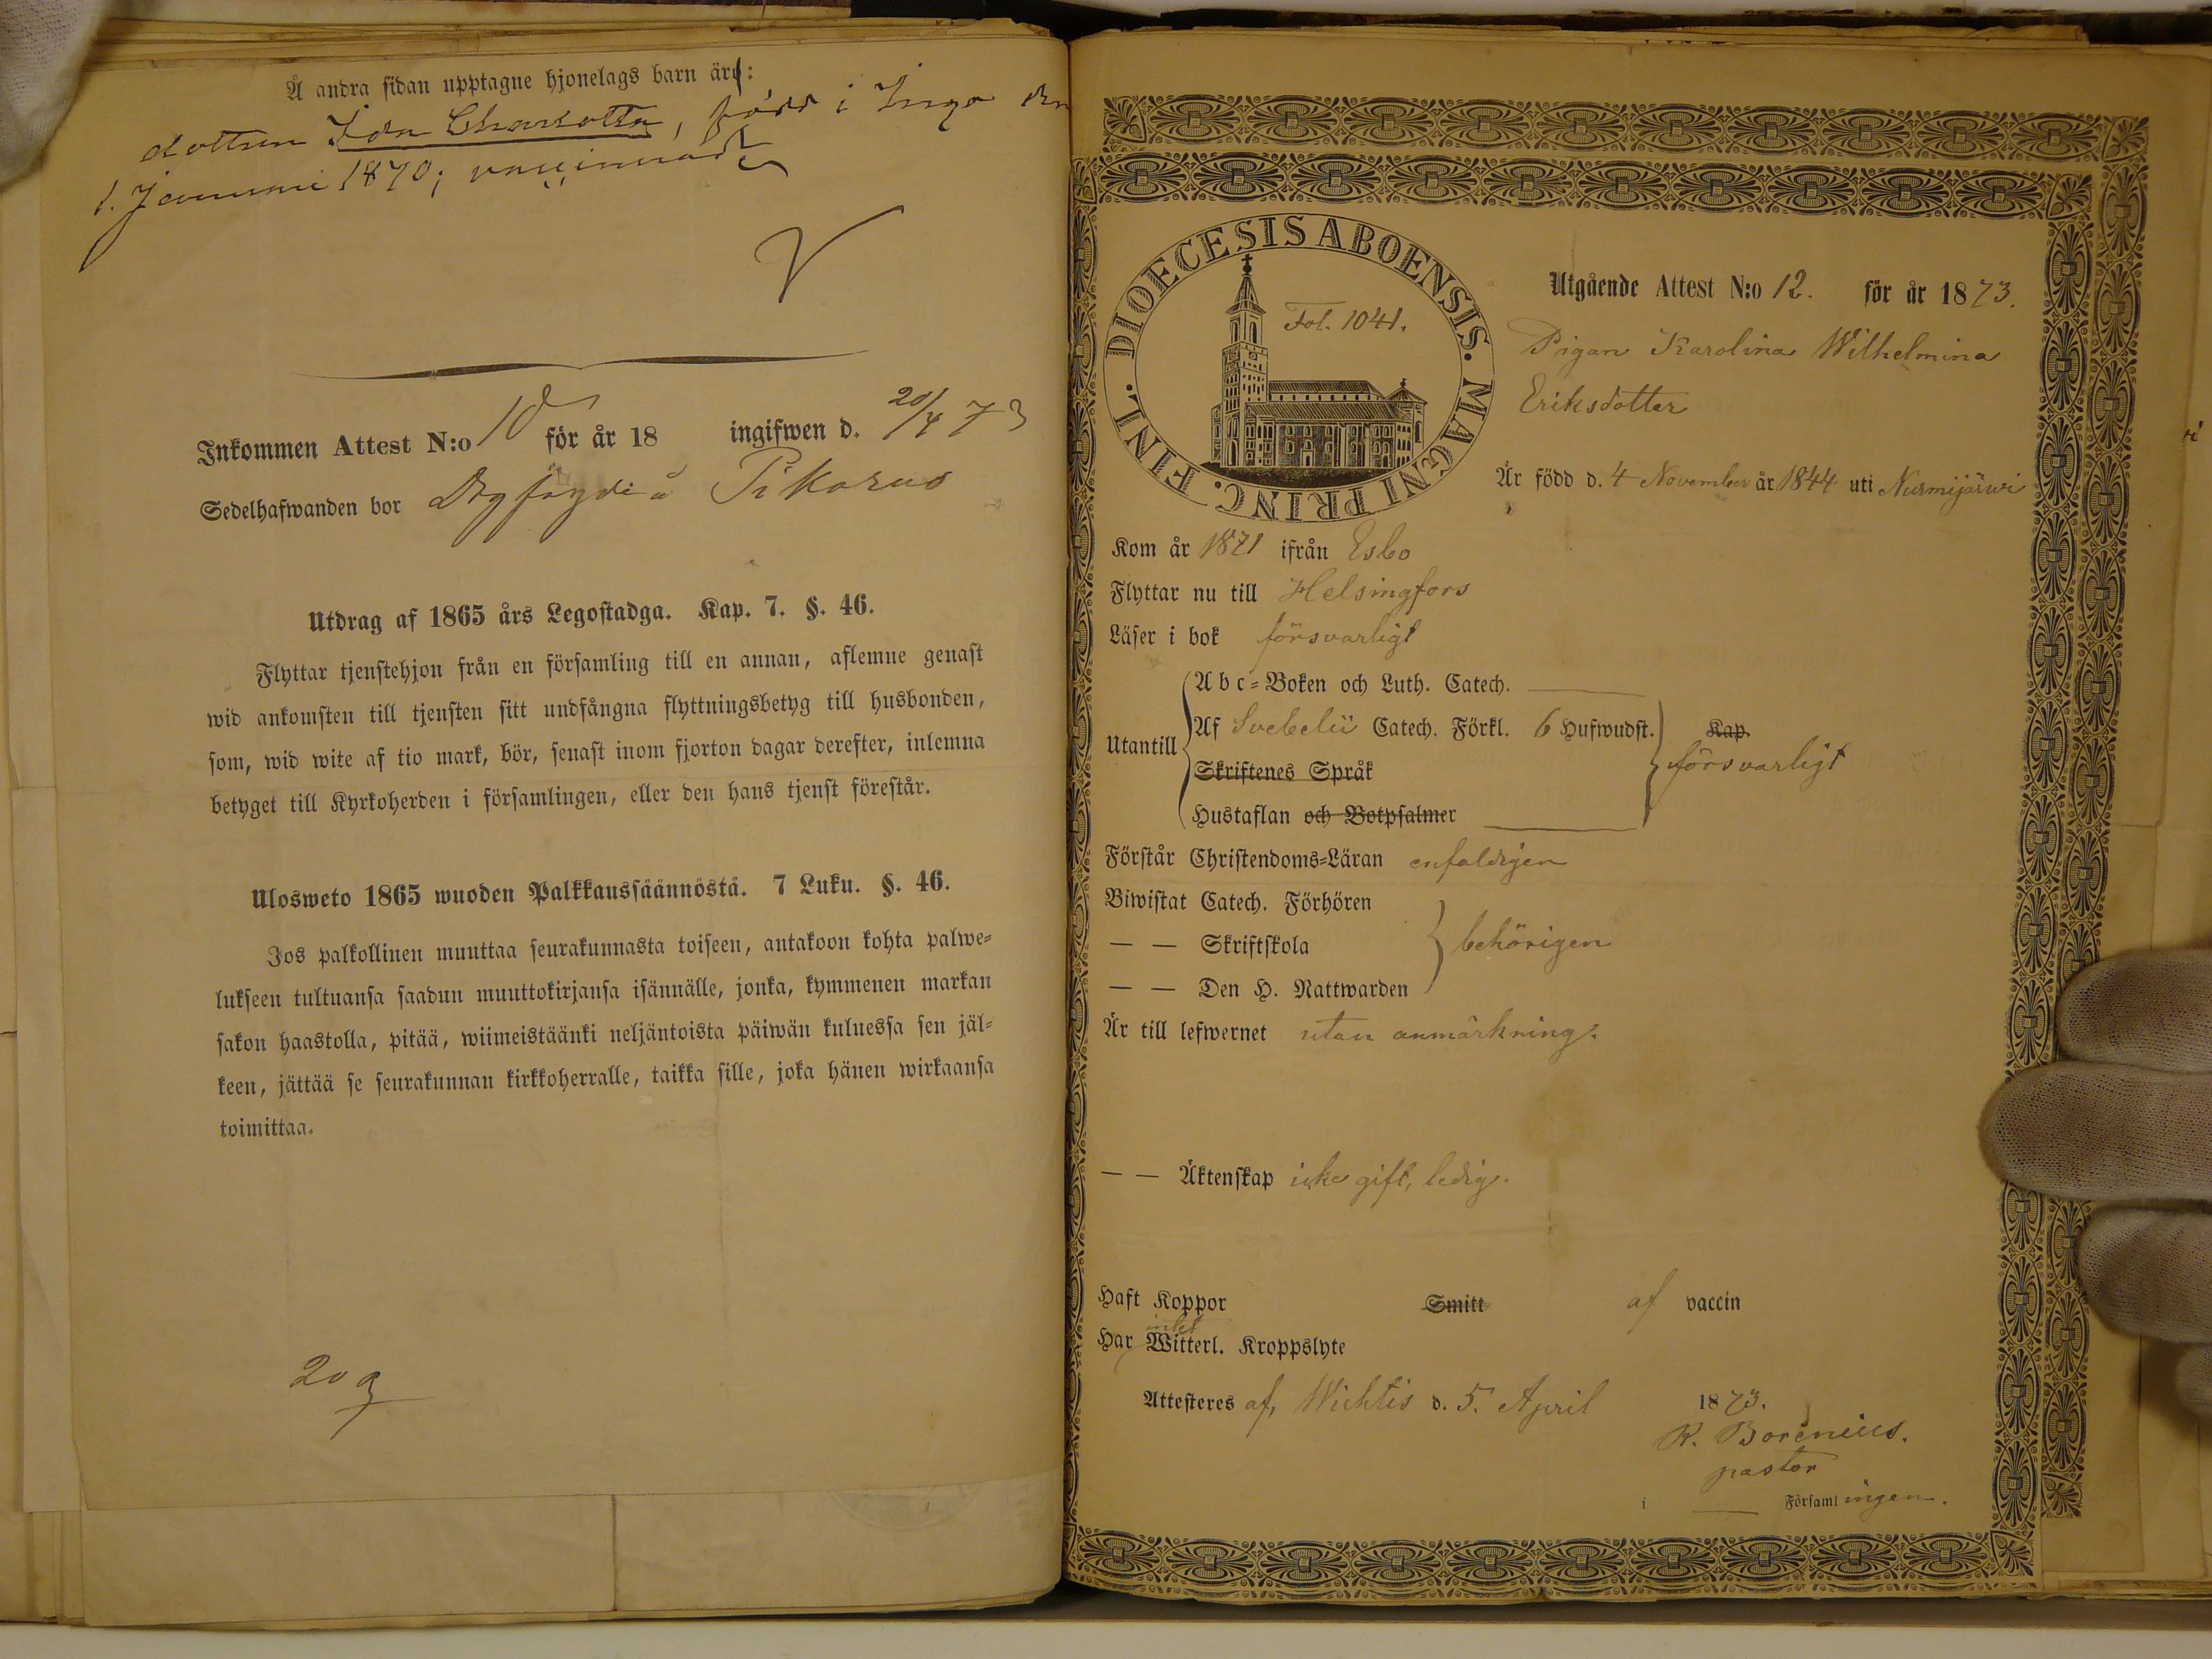 Å andra sidan upptagne hjonelags barn är:
dottren Ida Charlotta, född i Inga den
1. Januari 1870; vaccinerad
Inkommen Attest N:o 10 för år 18 ingifwen d. 20/4 73
Sedelhafwanden bor å
Utdrag af 1865 års Legostadga. Kap. 7. §. 46.
Flyttar tjenstehjon från en församling till en annan, aflemne genast
wid ankomsten till tjensten sitt undfångna flyttningsbetyg till husbonden,
som, wid wite af tio mark, bör, senast inom fjorton dagar derefter, inlemna
betyget till Kyrkoherden i församlingen, eller den hans tjenst förestår.
Ulosweto 1865 wuoden Palkkaussäännöstä. 7 Luku. §. 46.
Jos palkollinen muuttaa seurakunnasta toiseen, antakoon kohta palwe-
lukseen tultuansa saadun muuttokirjansa isännälle, jonka, kymmenen markan
sakon haastolla, pitää, wiimeistäänki neljäntoista päiwän kuluessa sen jäl-
keen, jättää se seurakunnan kirkkoherralle, taikka sille, joka hänen wirkaansa
toimittaa.
DIOECESIS ABOENSIS. MAGNI PRINC. FINL.
Fol. 1041.
Utgående Attest N:o 12. för år 1873.
Pigan Karolina Wilhelmina
Eriksdotter
Är född d. 4 November år 1844 uti Nurmijärwi
Kom år 1871 ifrån Esbo
Flyttar nu till Helsingfors
Läser i bok försvarligt
Utantill
Abc-Boken och Luth. Catech.
Af Svebelii Catech. Förkl. 6 Hufwudst. Kap.
Skriftenes Språk
försvarligt
Hustaflan och Botpsalmer
Förstår Christendoms-Läran enfaldigen
Biwistat Catech. Förhören
— — Skriftskola
behörigen
— — Den H. Nattwarden
Är till lefwernet utan anmärkning.
— — Äktenskap icke gift, ledig.
Haft Koppor Smitt af vaccin
Har intet Witterl. Kroppslyte
Attesteres af, Wichtis d. 5. April 1873.
R. Borenius.
pastor
i Församlingen.